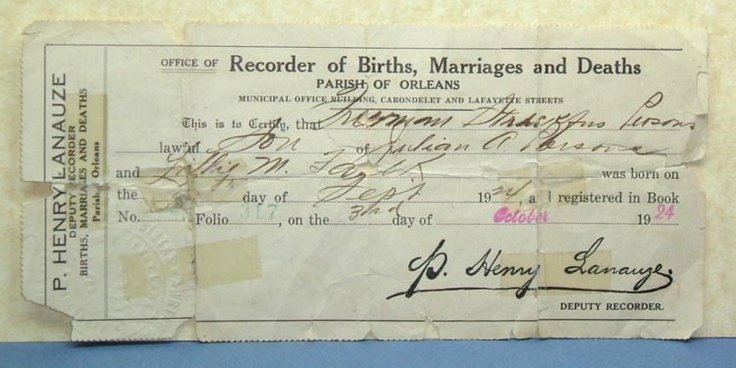 P. HENRY LANAUZE
DEPUTY RECORDER
BIRTHS, MARRIAGES AND DEATHS
Parish of Orleans
OFFICE OF Recorder of Births, Marriages and Deaths
PARISH OF ORLEANS
MUNICIPAL OFFICE BUILDING, CARONDELET AND LAFAYETTE STREETS
This is to Certify, that Freeman Persons
lawful Son of Julian A Persons
and Lillie M. was born on
the day of Sept 1924, and registered in Book
No. Folio 317, on the 3rd day of October 1924
P. Henry Lanauze.
DEPUTY RECORDER.